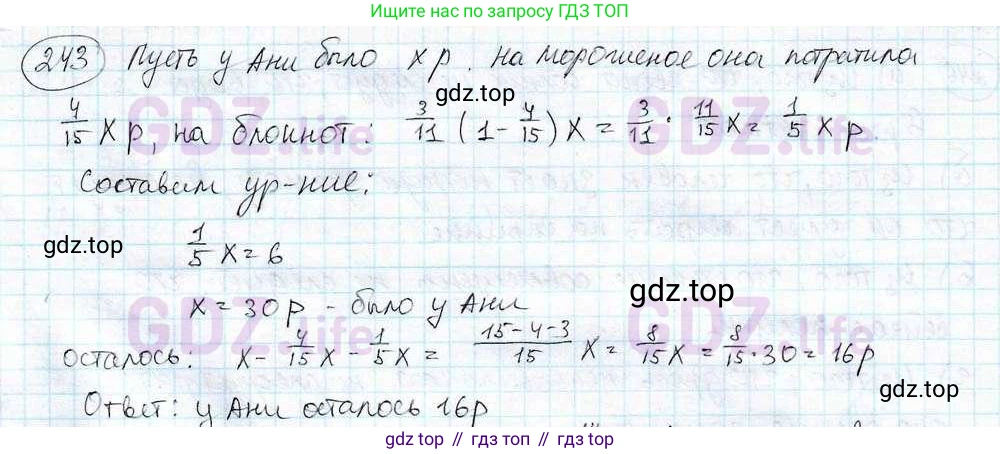 Ищите нас по запросу ГДЗ ТОП
243 Пусть у Ани было x р. на мороженое она потратила
4/15 x р, на блокнот: 3/11 (1 - 4/15) x = 3/11 · 11/15 x = 1/5 x р.
gdz.top
Составим ур-ние:
gdz.top
1/5 x = 6
x = 30 р - было у Ани
gdz.top
осталось: x - 4/15 x - 1/5 x = (15-4-3)/15 x = 8/15 x = 8/15 · 30 = 16 р
gdz.top
Ответ: у Ани осталось 16 р
GDZ.life
GDZ.life
GDZ.life
GDZ.life
gdz.top // гдз топ // гдз.top